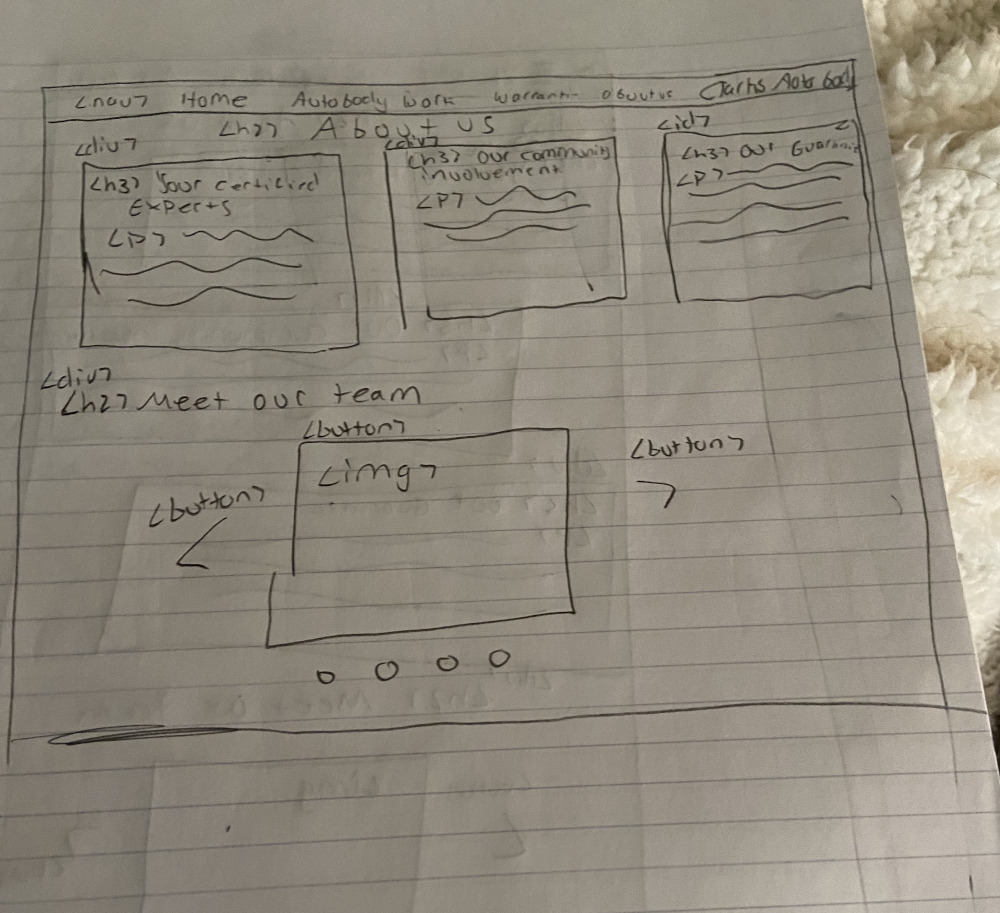 <nav> Home Autobody work warranty about us Clarks Auto body
<h2> About us
<div>
<div>
<id>
<h3> Your certified
Experts
<P>
<h3> Our community
involvement
<P>
<h3> Our
<P>
<div>
<h2> Meet our team
<button>
<img>
<button>
<button>